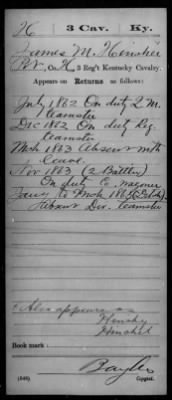 H | 3 Cav. | Ky.
James M. Henshel
Pvt., Co. H, 3 Reg't Kentucky Cavalry.
Appears on
Returns as follows:
July 1862 On duty Q M.
teamster
Dec 1862 On duty Reg.
teamster
Mch 1863 Absent with
leave.
Nov 1863 (2 Battln)
On duty Co. wagoner
Jany to Mch 186
Absent Div. teamster
Also appears as
Henshy
Henchel
Book mark:
Bayler
(546) Copyist.